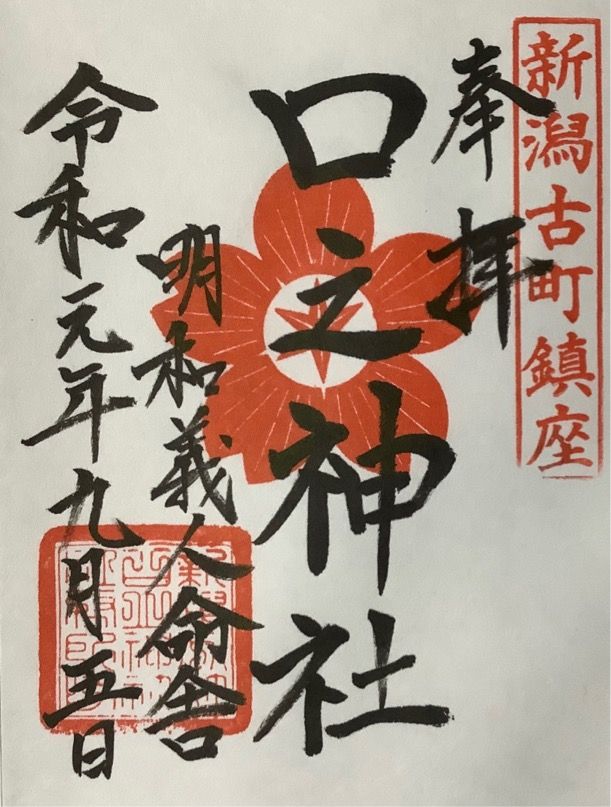 新潟古町鎮座
奉拝
口之神社
明和義人命舎
令和元年九月五日